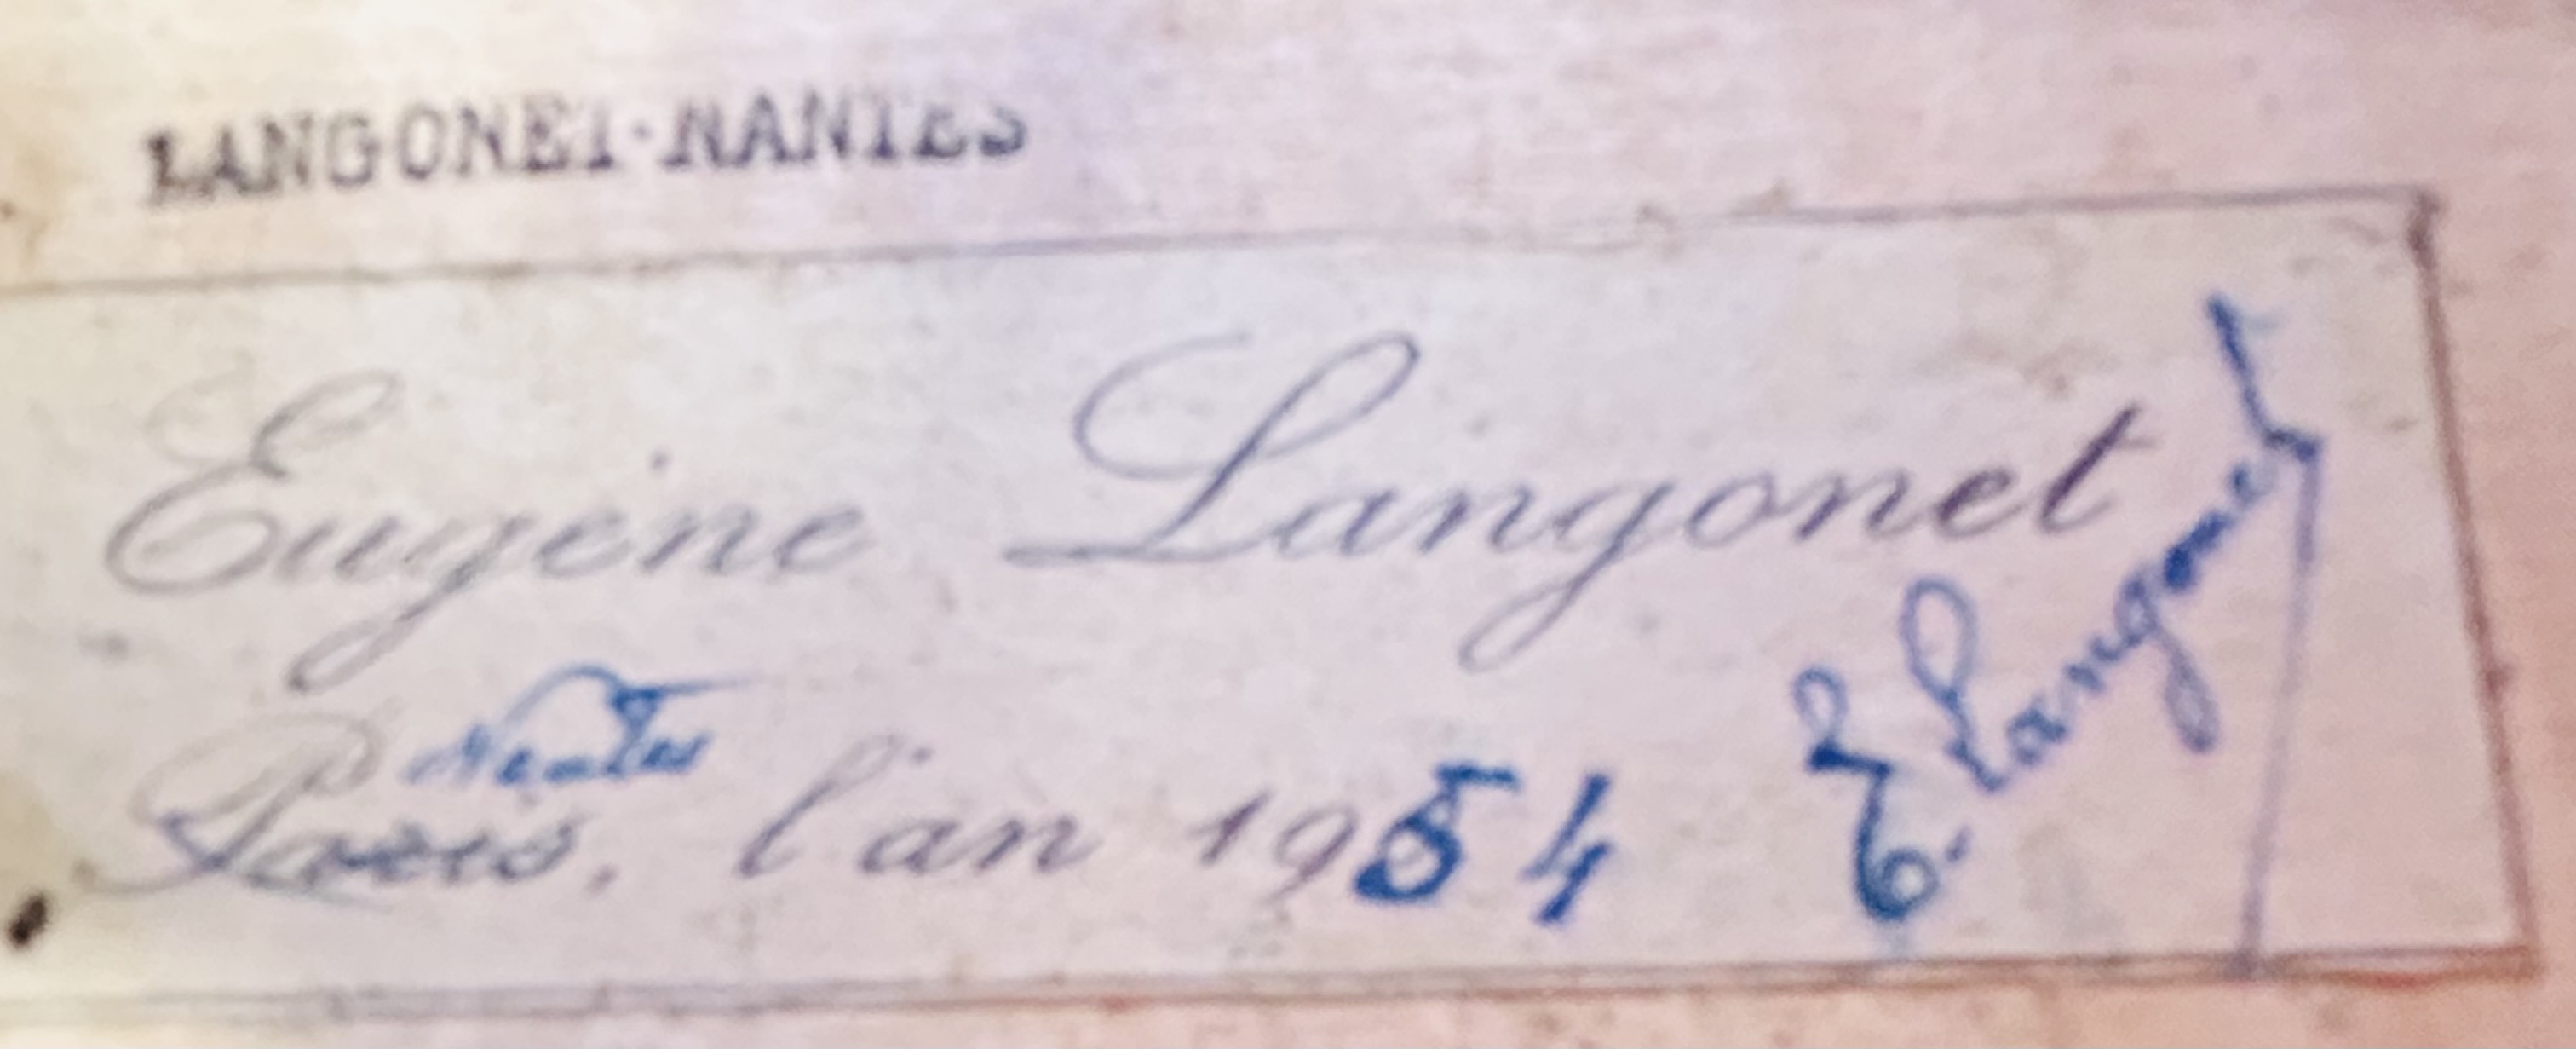 LANGONET·NANTES
Eugène Langonet
Nantes
Paris, l'an 1954
E. Langonet